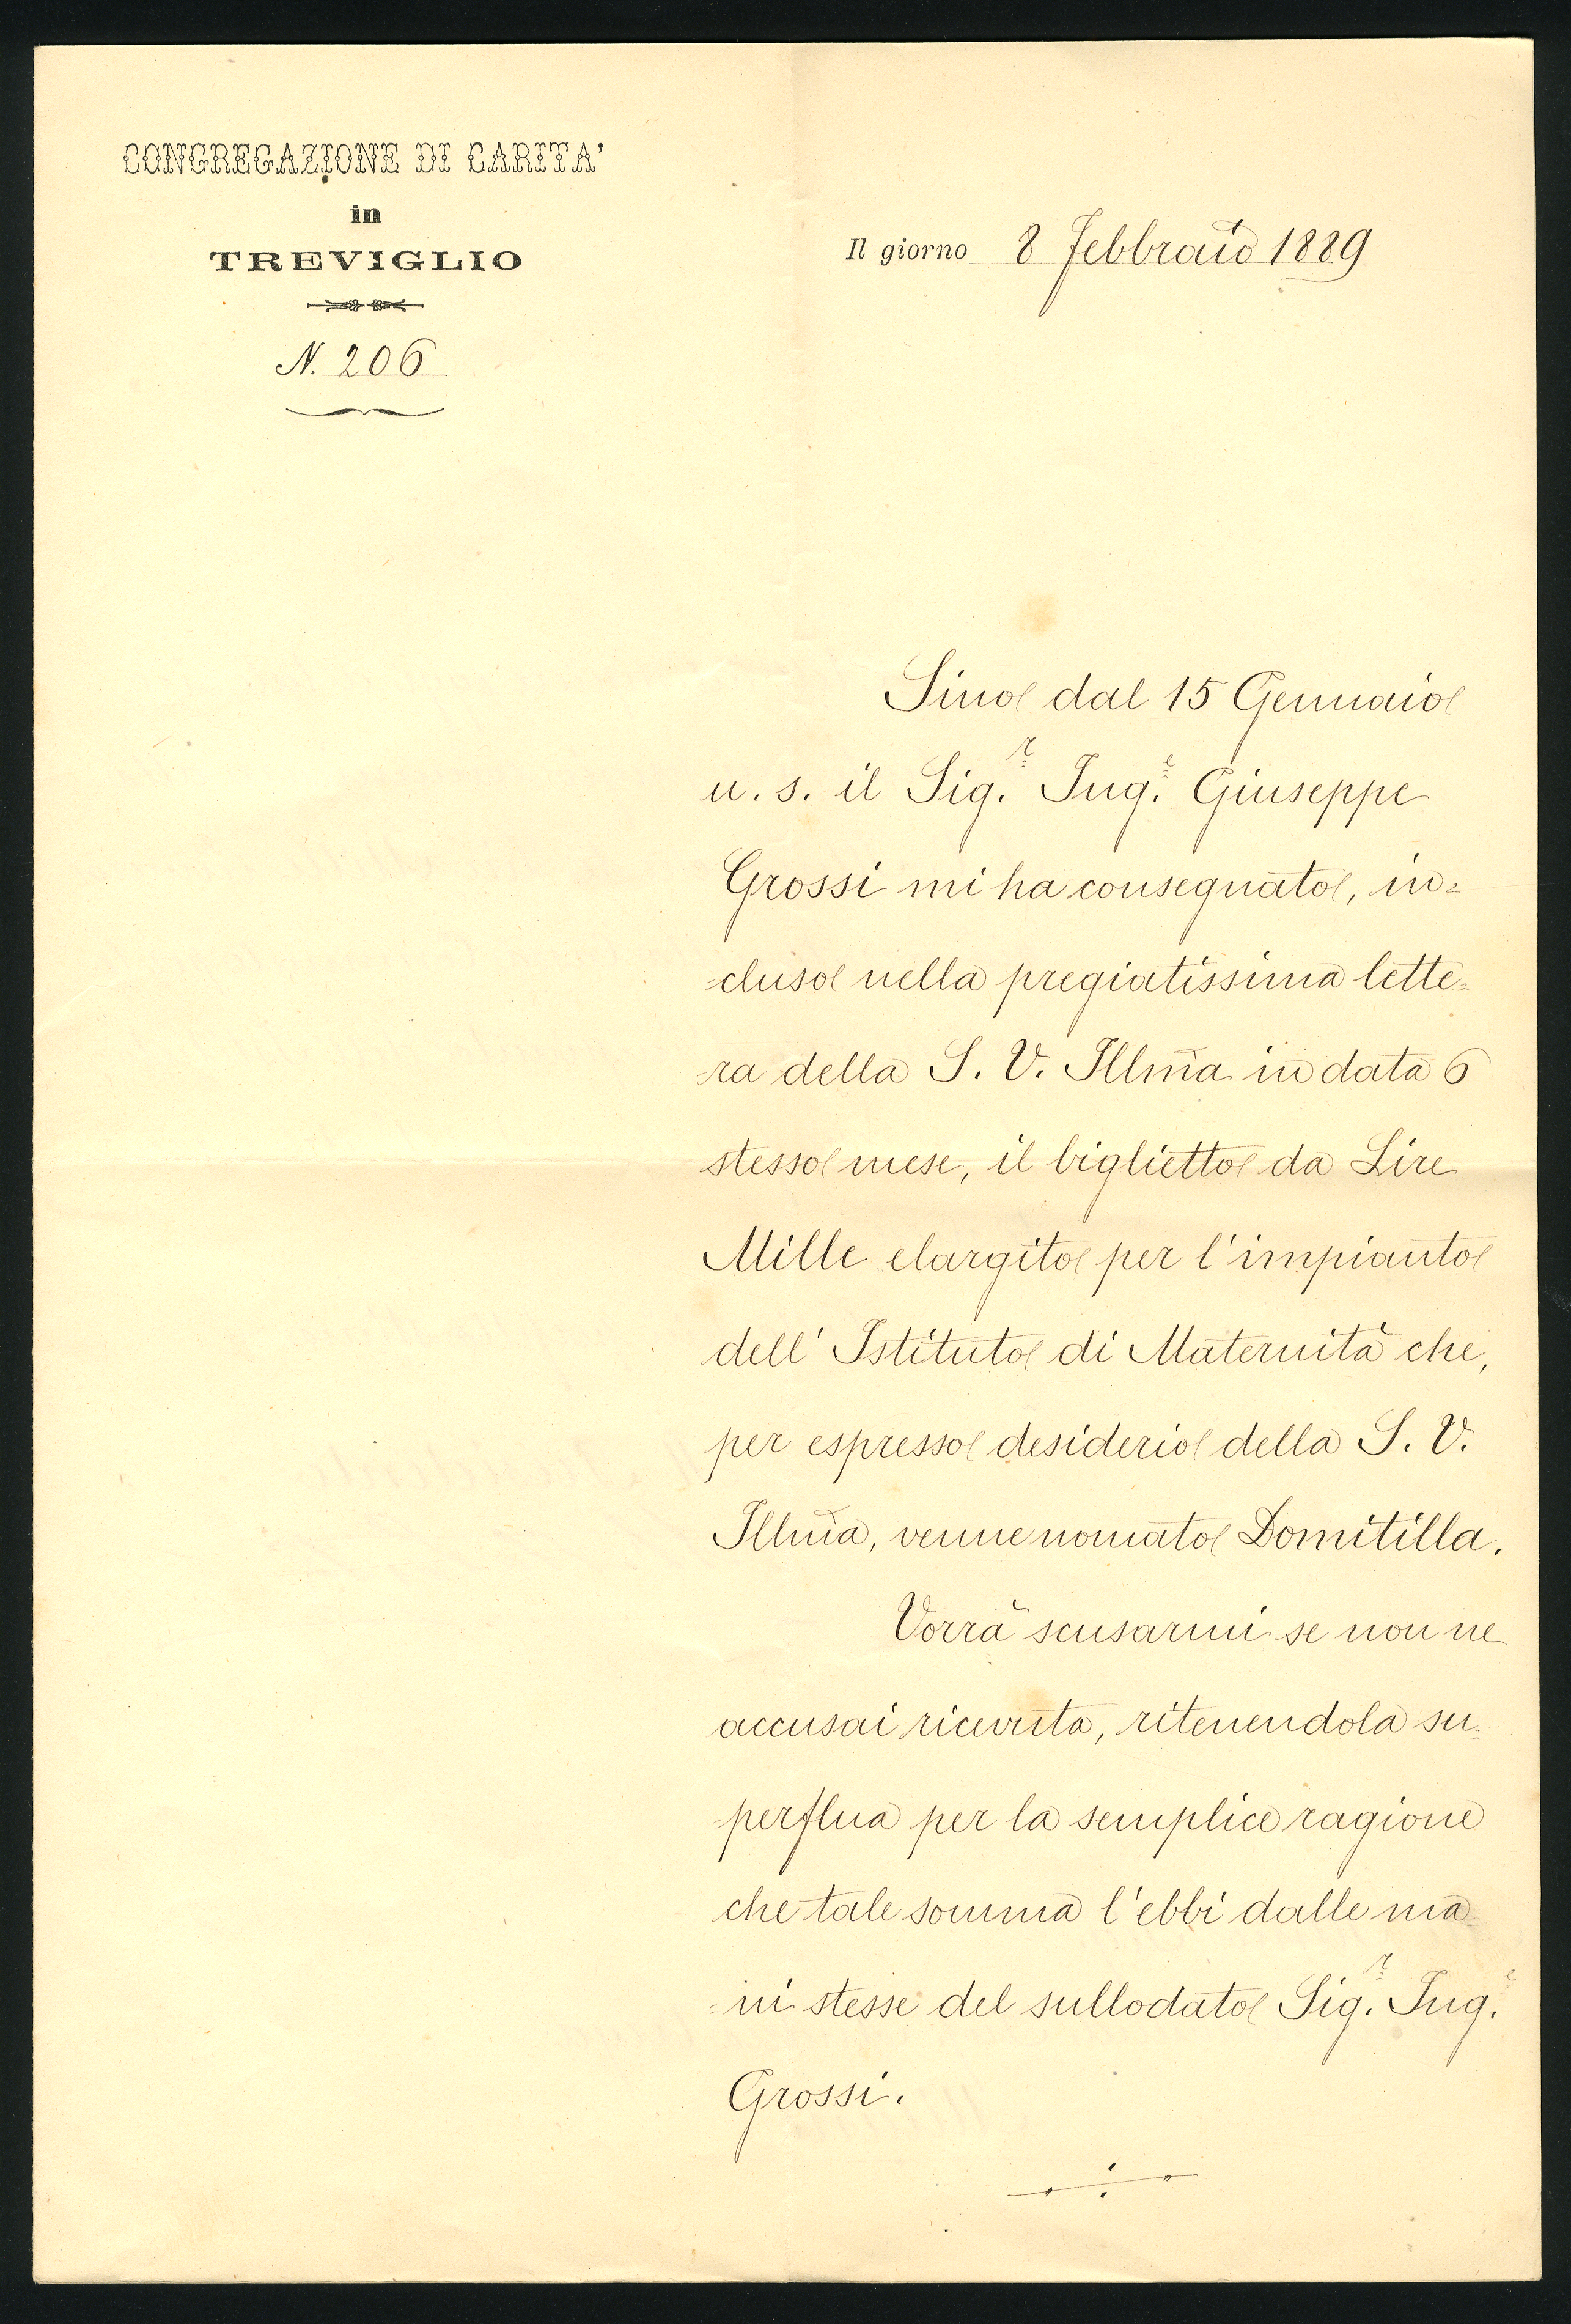 CONGREGAZIONE DI CARITA'
in
TREVIGLIO
N. 206
Il giorno 8 Febbraio 1889
Sino dal 15 Gennaio
u. s. il Sig.r Ing.e Giuseppe
Grossi mi ha consegnato, in=
cluso nella pregiatissima lette=
ra della S. V. Illm̃a in data 6
stesso mese, il biglietto da Lire
Mille elargito per l'impianto
dell' Istituto di Maternità che,
per espresso desiderio della S. V.
Illm̃a, venne nomato Domitilla.
Vorrà scusarmi se non ne
accusai ricevuta, ritenendola su=
perflua per la semplice ragione
che tale somma l'ebbi dalle ma=
=ni stesse del sullodato Sig.r Ing.e
Grossi.